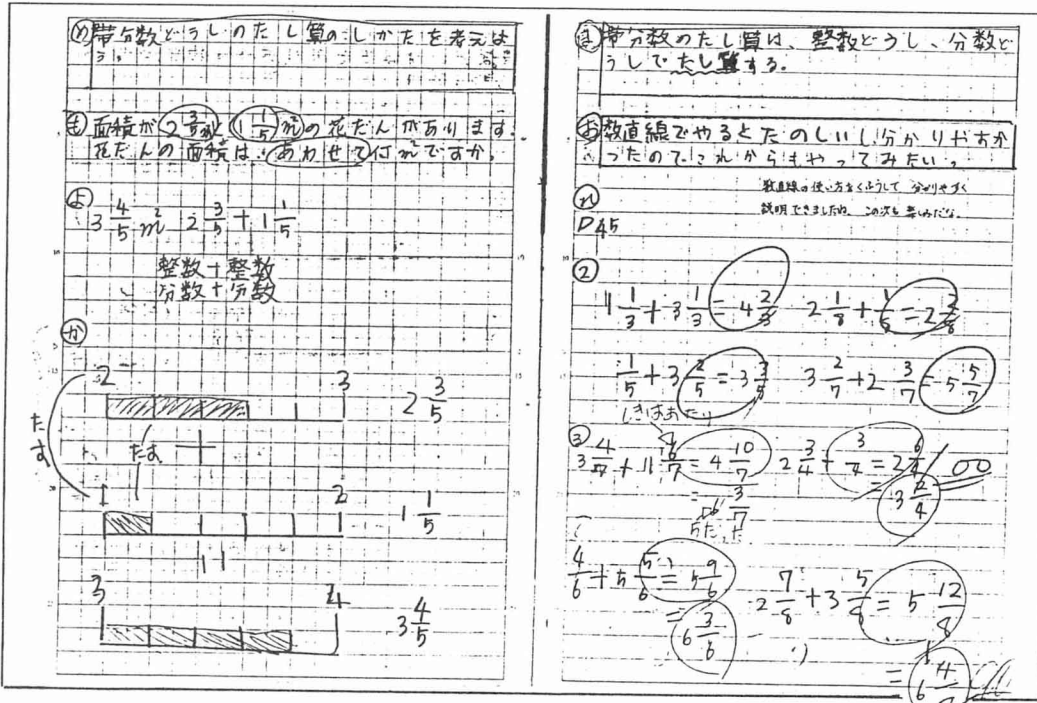 め 帯分数どうしのたし算のしかたを考えよ
う。
も 面積が 2 3/5 m² と 1 1/5 m² の花だんがあります。
花だんの面積は、あわせて何m²ですか。
よ
3 4/5 m² 2 3/5 + 1 1/5
整数+整数
分数+分数
か
2 3 2 3/5
たす
たす
+
1 2 1 1/5
3 4 3 4/5
ま 帯分数のたし算は、整数どうし、分数ど
うしでたし算する。
お 数直線でやるとたのしいし分かりやすか
ったのでこれからもやってみたい。
数直線の使い方をくふうして 分かりやすく
説明できましたね。この次も楽しみだな。
れ
P45
②
1 1/3 + 3 1/3 = 4 2/3 2 1/8 + 1/8 = 2 2/8
1/5 + 3 2/5 = 3 3/5 3 2/7 + 2 3/7 = 5 5/7
しきはあたり
③
3 4/7 + 1 6/7 = 4 10/7 2 3/4 + 3/4 = 2 6/4 100
= 3/7 = 3 2/4
4/6 + 5 5/6 = 5 9/6 2 7/8 + 3 5/8 = 5 12/8
= 6 3/6
= 6 4/